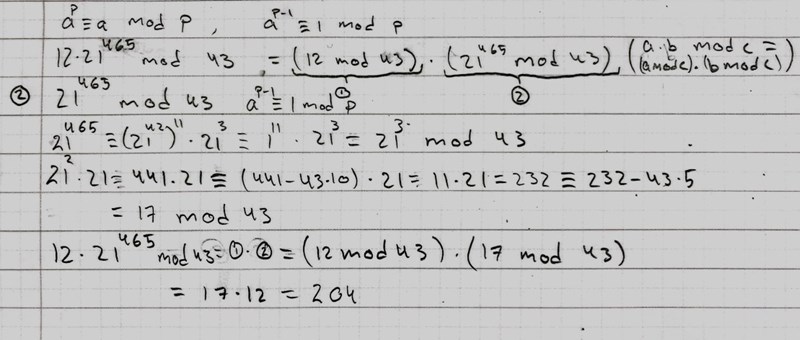 a^p ≡ a mod p, a^{p-1} ≡ 1 mod p
12·21^{465} mod 43 = (12 mod 43)·(21^{465} mod 43) (a·b mod c = (a mod c)·(b mod c))
① ②
② 21^{465} mod 43 a^{p-1} ≡ 1 mod p
21^{465} ≡ (21^{42})^{11}·21^3 ≡ 1^{11}·21^3 ≡ 21^3 mod 43
21^2·21 ≡ 441·21 ≡ (441-43·10)·21 = 11·21 = 232 ≡ 232-43·5
= 17 mod 43
12·21^{465} mod 43 = ①·② = (12 mod 43)·(17 mod 43)
= 17·12 = 204